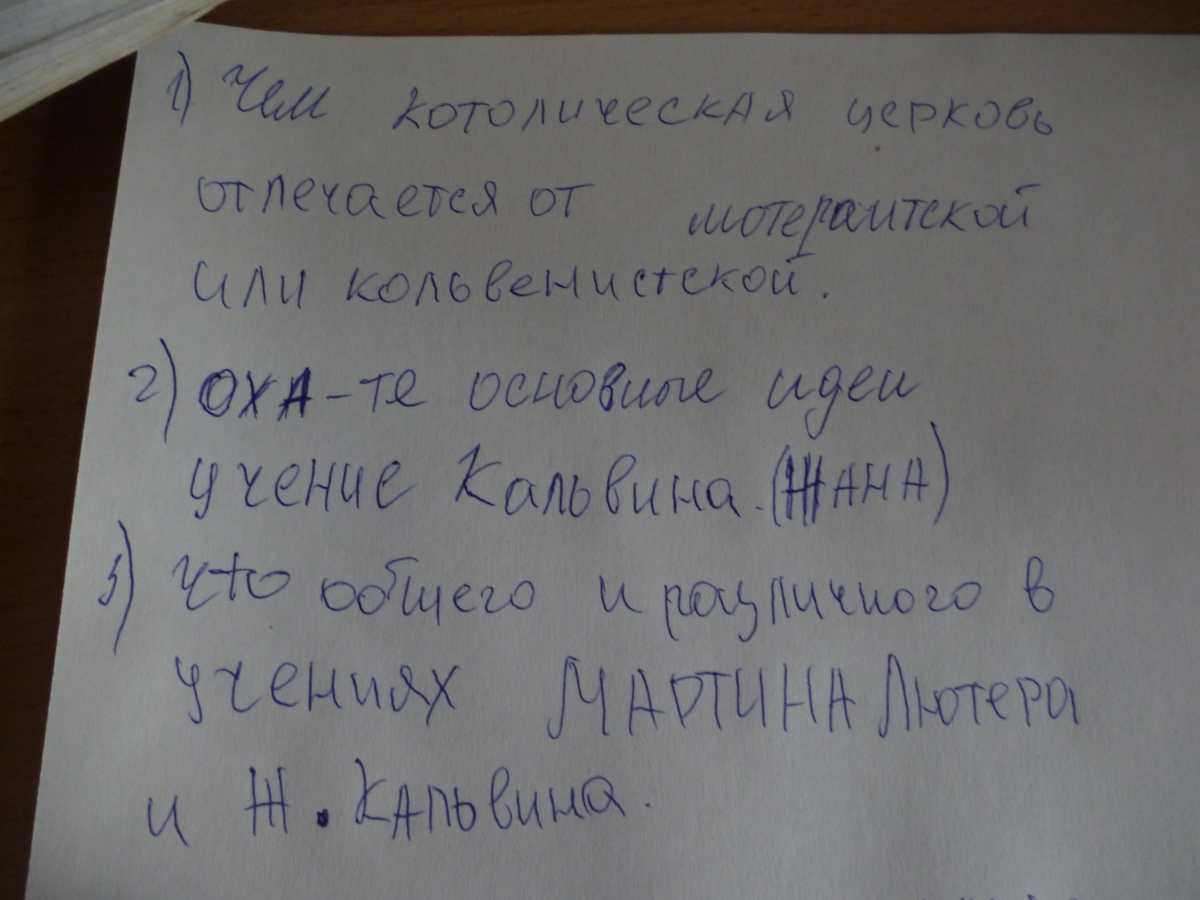 1) Чем котолическая церковь
отлечается от мотераитской
или кольвенистской.
2) оха-те основные идеи
учение Кальвина. (ЖАНА)
3) что общего и различного в
учениях МАРТИНА Лютера
и Ж. Кальвина.